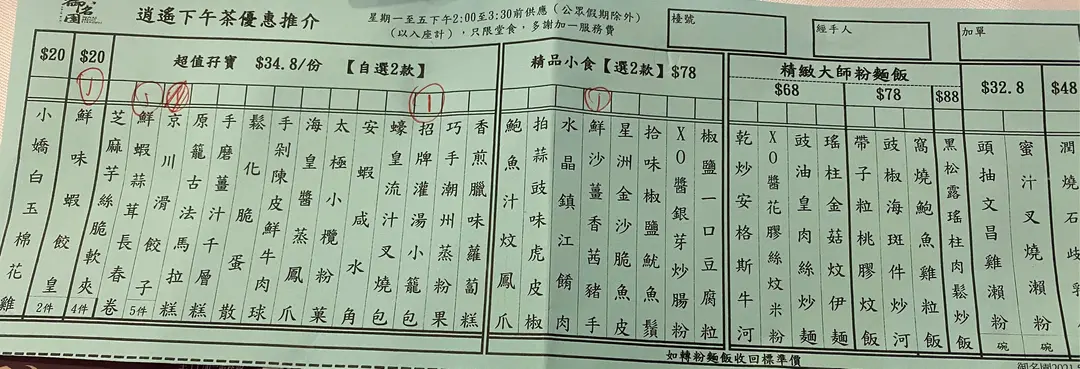 御名園
逍遙下午茶優惠推介
星期一至五下午2:00至3:30前供應(公眾假期除外)
(以入座計),只限堂食,多謝加一服務費
檯號
經手人
加單
$20
$20
超值孖寶 $34.8/份 【自選2款】
精品小食【選2款】$78
精緻大師粉麵飯
$68
$78
$88
$32.8
$48
小嬌白玉棉花雞
鮮味蝦餃皇 2件
芝麻芋絲脆軟夾 4件
鮮蝦蒜茸長春卷
京川滑餃子 5件
原籠古法馬拉糕
手磨薑汁千層糕
鬆化脆蛋散
手剁陳皮鮮牛肉球
海皇醬蒸鳳爪
太極小欖粉菓
安蝦咸水角
蠔皇流汁叉燒包
招牌灌湯小籠包
巧手潮州蒸粉果
香煎臘味蘿蔔糕
鮑魚汁炆鳳爪
拍蒜豉味虎皮椒
水晶鎮江餚肉
鮮沙薑香茜豬手
星洲金沙脆魚皮
拾味椒鹽魷魚鬚
XO醬銀芽炒腸粉
椒鹽一口豆腐粒
乾炒安格斯牛河
XO醬花膠絲炆米粉
豉油皇肉絲炒麵
瑤柱金菇炆伊麵
帶子粒桃膠炆飯
豉椒海斑件炒河
窩燒鮑魚雞粒飯
黑松露瑤柱肉鬆炒飯
頭抽文昌雞瀨粉 碗
蜜汁叉燒瀨粉 碗
潤燒石岐乳
如轉粉麵飯收回標準價
御名園2021